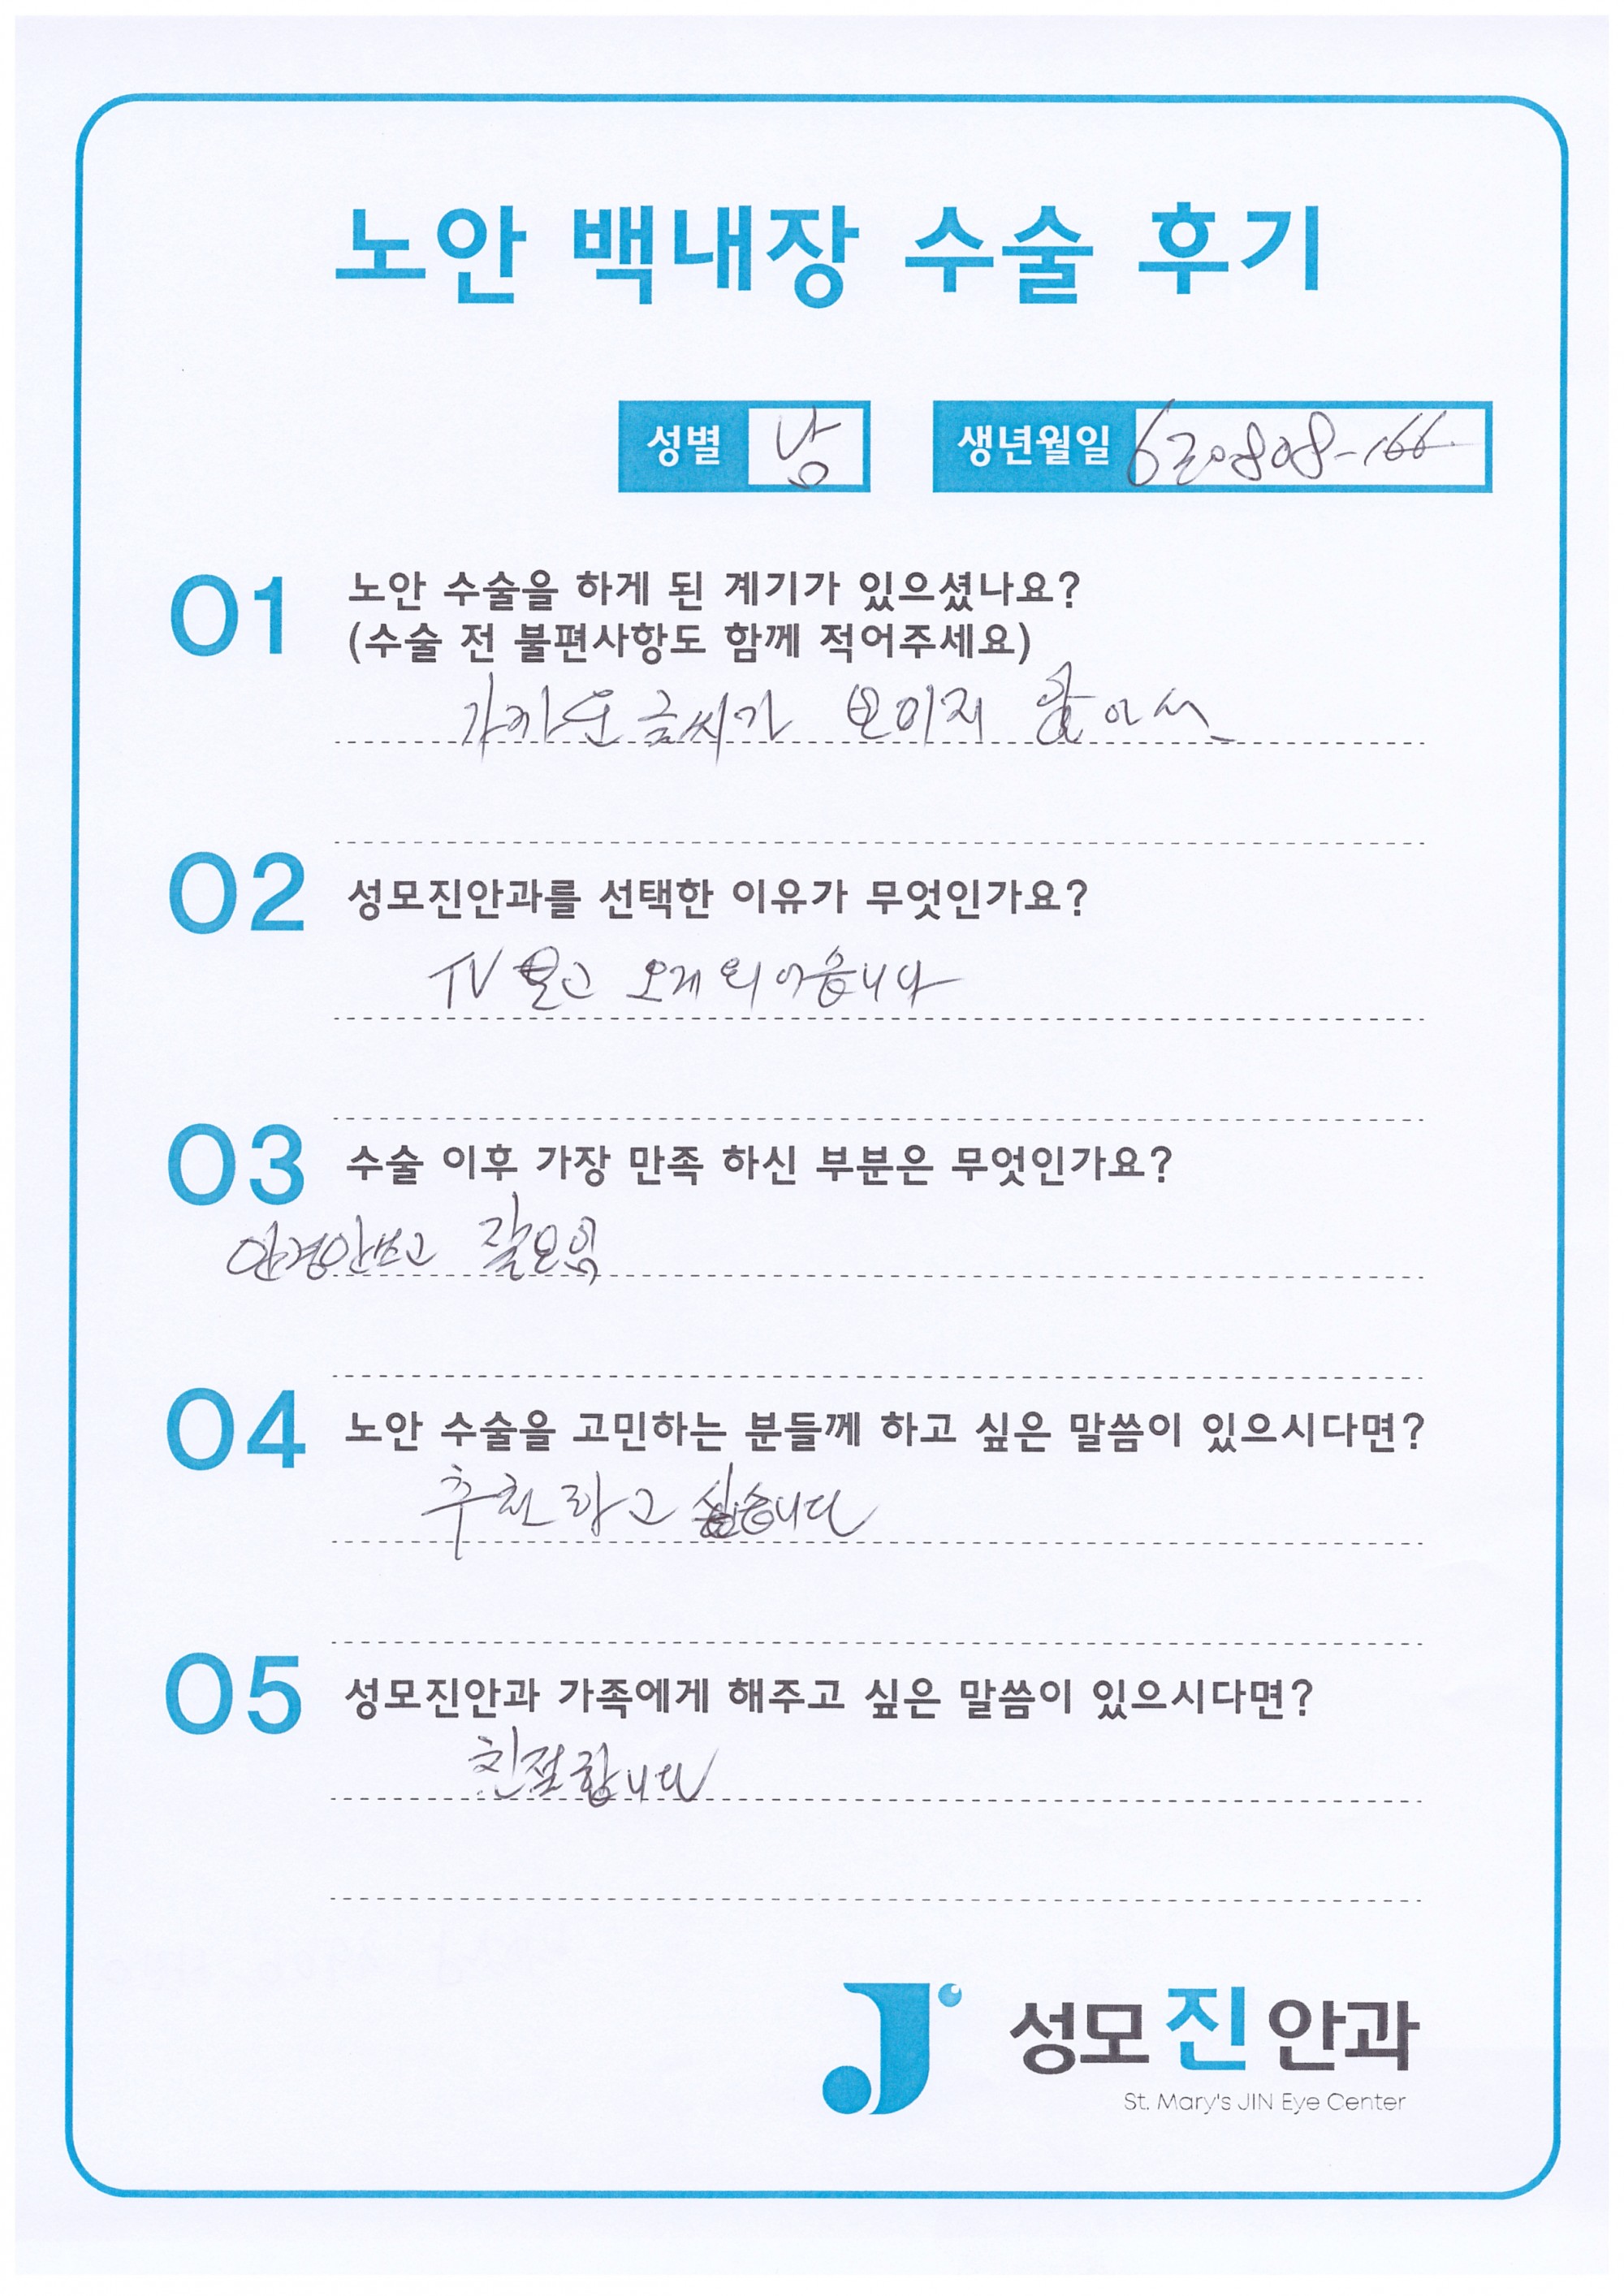 노안 백내장 수술 후기
성별 남 생년월일 630808-166
01 노안 수술을 하게 된 계기가 있으셨나요?
(수술 전 불편사항도 함께 적어주세요)
가까운 글씨가 보이지 않아서
02 성모진안과를 선택한 이유가 무엇인가요?
TV 보고 오게 되어습니다
03 수술 이후 가장 만족 하신 부분은 무엇인가요?
안경안쓰고 잘보임
04 노안 수술을 고민하는 분들께 하고 싶은 말씀이 있으시다면?
추천하고 싶습니다
05 성모진안과 가족에게 해주고 싶은 말씀이 있으시다면?
친절합니다
성모진안과
St. Mary's JIN Eye Center